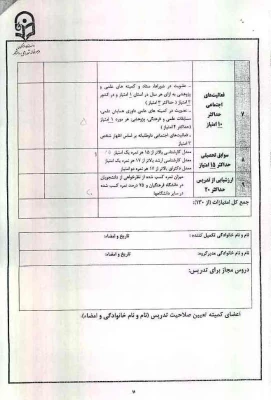 - عضویت در شوراها، ستاد و کمیته های علمی و
پژوهشی به ازای هر سال در استان ۱ امتیاز و در کشور
۲ امتیاز ( حداکثر ۴ امتیاز )
- عضویت در کمیته های علمی داوری همایش علمی،
مسابقات علمی و فرهنگی، پژوهشی هر دوره ۱ امتیاز
(حداکثر ۴ امتیاز)
- فعالیت‌های اجتماعی داوطلبانه بر اساس اظهار شخص
۲ امتیاز
۷
فعالیت‌های
اجتماعی
حداکثر
۱۰ امتیاز
معدل کارشناسی بالاتر از ۱۵ هر نمره یک امتیاز
معدل کارشناسی ارشد بالاتر از ۱۷ هر نمره یک امتیاز
معدل دکترای بالاتر از ۱۷ هر نمره دو امتیاز
۸
سوابق تحصیلی
حداکثر ۱۵ امتیاز
میزان نمره کسب شده از نظرخواهی از دانشجویان
در دانشگاه فرهنگیان و ۷۵ درصد نمره کسب شده
در سایر دانشگاهها
۹
ارزشیابی از تدریس
حداکثر ۲۰
جمع کل امتیازات (از ۱۳۰):
نام و نام خانوادگی تکمیل کننده: تاریخ و امضاء:
نام و نام خانوادگی مدیر گروه: تاریخ و امضاء:
دروس مجاز برای تدریس:
اعضای کمیته تعیین صلاحیت تدریس (نام و نام خانوادگی و امضاء):